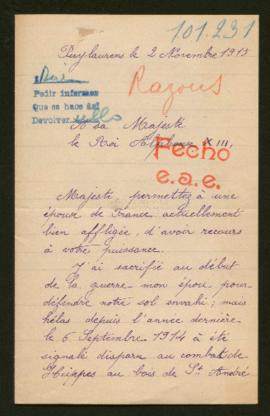 101.231
Puylaurens le 2 Novembre 1915
Razous
Pedir informes
Que se hace así
Devolver
A sa Majesté
le Roi Alphonse XIII,
Fecho
e.a.e.
Majesté permettez à une
épouse de France, actuellement
bien affligée, d'avoir recours
à votre puissance.
J'ai sacrifié au début
de la guerre mon époux pour
défendre notre sol envahi; mais
hélas depuis l'année dernière
le 6 Septembre 1914 a été
signalé disparu au combat de
au bois de St André